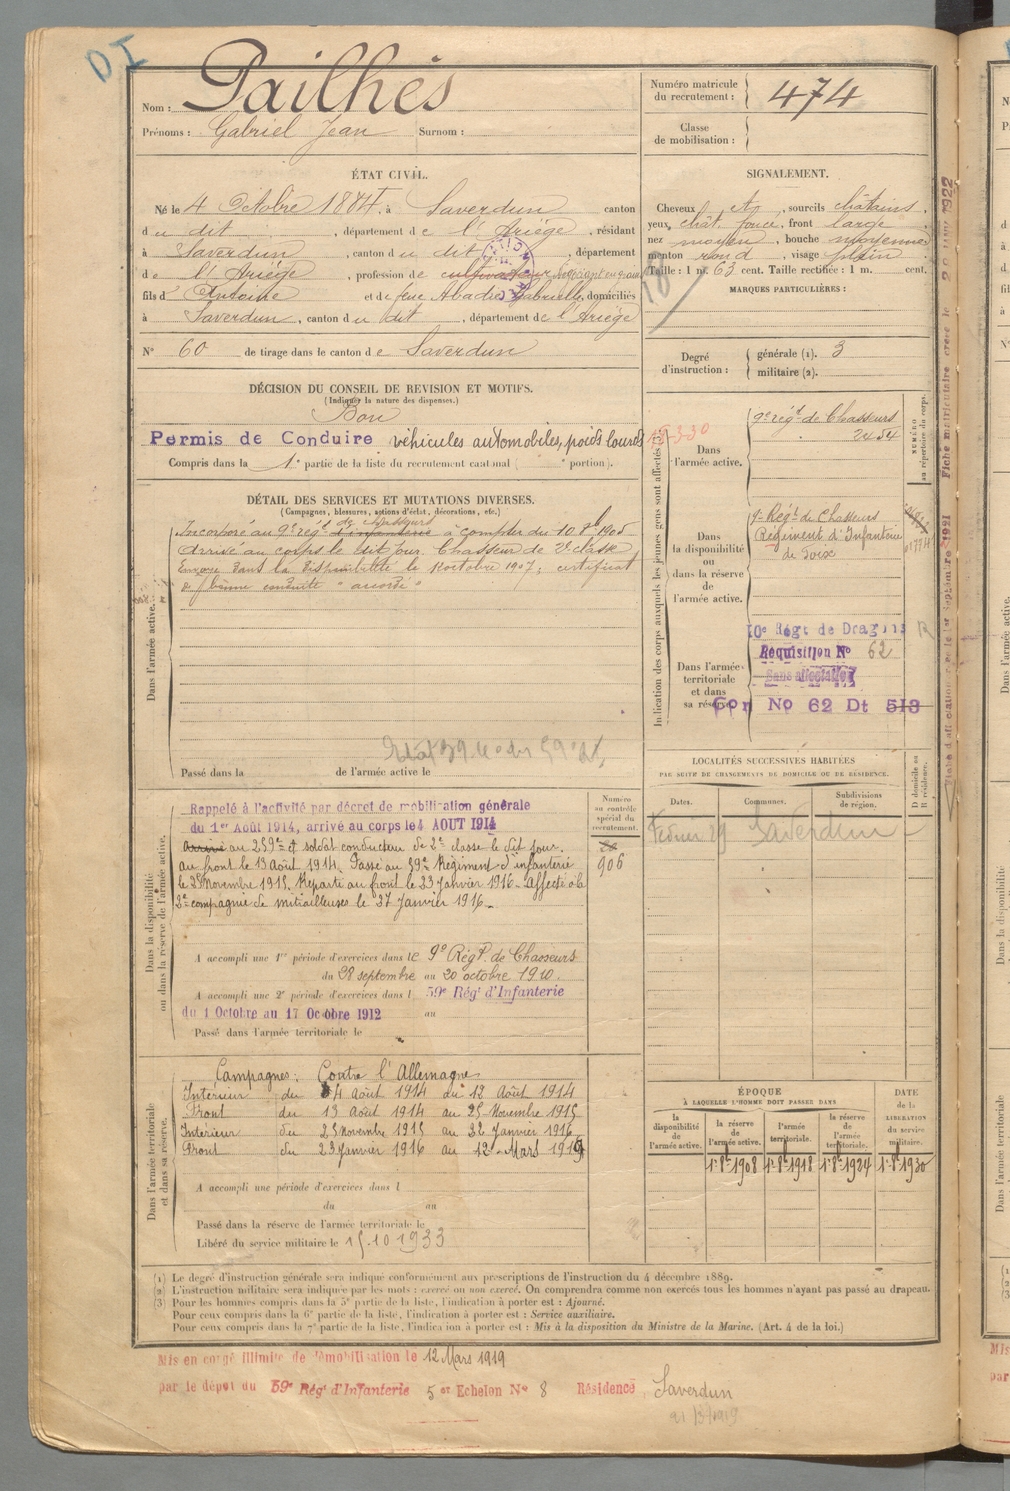 DI
Nom : Pailhès
Prénoms : Gabriel Jean Surnom :
Numéro matricule
du recrutement : 474
Classe
de mobilisation :
ÉTAT CIVIL.
Né le 4 Octobre 1884, à Saverdun canton
du dit, département de l'Ariège, résidant
à Saverdun, canton du dit, département
de l'Ariège, profession de cultivateur
fils d' Antoine et de feue Abadie Gabrielle, domiciliés
à Saverdun, canton du dit, département de l'Ariège
N° 60 de tirage dans le canton de Saverdun
SIGNALEMENT.
Cheveux et, sourcils châtains,
yeux chât. foncé, front large
nez moyen, bouche moyenne
menton rond, visage plein
Taille : 1 m. 63 cent. Taille rectifiée : 1 m. cent.
MARQUES PARTICULIÈRES :
18
Degré
d'instruction :
générale (1). 3
militaire (2).
DÉCISION DU CONSEIL DE REVISION ET MOTIFS.
(Indiquer la nature des dispenses.)
Bon
Permis de Conduire véhicules automobiles, poids lourds
Compris dans la 1e partie de la liste du recrutement cantonal ( " portion).
DÉTAIL DES SERVICES ET MUTATIONS DIVERSES.
(Campagnes, blessures, actions d'éclat, décorations, etc.)
Dans l'armée active.
Incorporé au 9e régt d'infanterie de chasseurs à compter du 10 8bre 1905
Arrivé au corps le dit jour. Chasseur de 2e classe
Envoyé dans la disponibilité le octobre 1907; certificat
de bonne conduite "accordé"
Passé dans la de l'armée active le
Indication des corps auxquels les jeunes gens sont affectés
NUMÉRO
au répertoire du corps.
Dans
l'armée active.
9e régt de Chasseurs
2454
Dans
la disponibilité
ou
dans la réserve
de
l'armée active.
9e Régt de Chasseurs
Régiment d'Infanterie
de Foix
Dans l'armée
territoriale
et dans
sa réserve.
10e Régt de Dragons
Réquisition N° 62
Sans affectation
Con No 62 Dt 513
Dans la disponibilité
ou dans la réserve de l'armée active.
Numéro
au contrôle
spécial du
recrutement.
906
Rappelé à l'activité par décret de mobilisation générale
du 1er Août 1914, arrivé au corps le 4 AOUT 1914
Arrivé au 259e et soldat conducteur de 2e classe le dit jour.
au front le 13 Août 1914. Passé au 59e Régiment d'infanterie
le 25 Novembre 1915. Reparti au front le 23 Janvier 1916 - Affecté à la
2e compagnie de mitrailleuses le 27 Janvier 1916 -
A accompli une 1re période d'exercices dans le 9e Régt de Chasseurs
du 28 septembre au 20 octobre 1910.
A accompli une 2e période d'exercices dans l 59e Régt d'Infanterie
du 1 Octobre au 17 Octobre 1912 au
Passé dans l'armée territoriale le
LOCALITÉS SUCCESSIVES HABITÉES
PAR SUITE DE CHANGEMENTS DE DOMICILE OU DE RÉSIDENCE.
Dates. Communes. Subdivisions
de région. D domicile ou
R résidence.
Saverdun
Dans l'armée territoriale
et dans sa réserve.
Campagnes : Contre l'Allemagne
Intérieur du 4 Août 1914 au 12 Août 1914
Front du 13 Août 1914 au 25 Novembre 1915
Intérieur du 25 Novembre 1915 au 22 Janvier 1916
Front du 23 Janvier 1916 au 12 Mars 1919
A accompli une période d'exercices dans l
du au
Passé dans la réserve de l'armée territoriale le
Libéré du service militaire le 15.10 1933
ÉPOQUE
À LAQUELLE L'HOMME DOIT PASSER DANS
la
disponibilité
de
l'armée active.
la réserve
de
l'armée active.
l'armée
territoriale.
la réserve
de
l'armée
territoriale.
DATE
de la
LIBÉRATION
du service
militaire.
1 8bre 1908 1 8bre 1918 1 8bre 1924 1 8bre 1930
(1) Le degré d'instruction générale sera indiqué conformément aux prescriptions de l'instruction du 4 décembre 1889.
(2) L'instruction militaire sera indiquée par les mots : exercé ou non exercé. On comprendra comme non exercés tous les hommes n'ayant pas passé au drapeau.
(3) Pour les hommes compris dans la 5e partie de la liste, l'indication à porter est : Ajourné.
Pour ceux compris dans la 6e partie de la liste, l'indication à porter est : Service auxiliaire.
Pour ceux compris dans la 7e partie de la liste, l'indication à porter est : Mis à la disposition du Ministre de la Marine. (Art. 4 de la loi.)
Mis en congé illimité de démobilisation le 12 Mars 1919
par le dépôt du 59e Régt d'Infanterie 5e Echelon N° 8 Résidence Saverdun